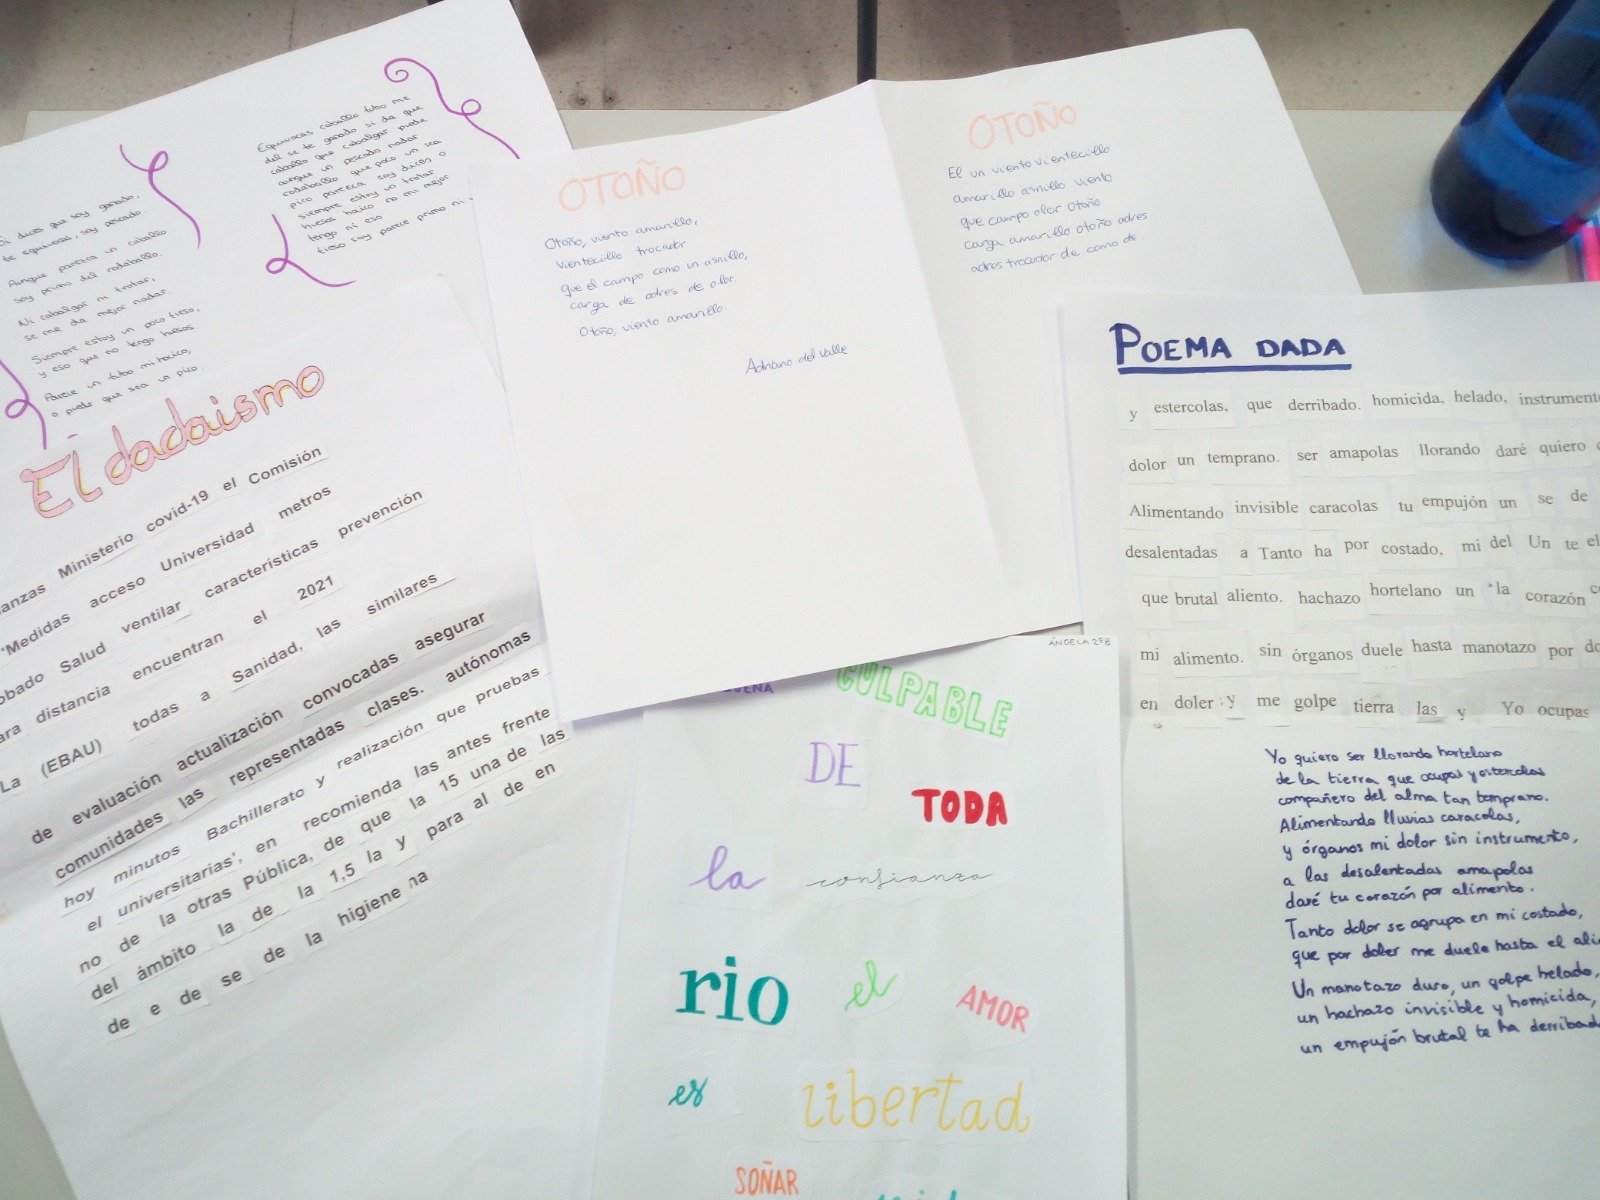 Si dices que soy ganado,
te equivocas, soy pescado
Aunque parezca un caballo
soy primo del rodaballo.
Ni cabalgar ni trotar,
se me da mejor nadar.
Siempre estoy un poco tieso,
y eso que no tengo huesos.
Parece un tubo mi hocico,
o puede que sea un pico.
Equivocas caballo tubo me
del se te ganado si da que
caballo que cabalgar puede
aunque un pescado nadar
rodaballo que poco un sea
pico parezca soy dices o
siempre estoy un trotar
huesos hocico no mi mejor
tengo ni eso
tieso soy parece primo ni
OTOÑO
Otoño, viento amarillo,
vientecillo trocador
que el campo como un asnillo,
carga de adres de olor.
Otoño, viento amarillo.
Adriano del Valle
OTOÑO
El un viento vientecillo
amarillo asnillo viento
que campo olor otoño
carga amarillo otoño adres
adres trocador de como de
El dadaísmo
anzas Ministerio covid-19 el Comisión
"Medidas acceso Universidad metros
obado Salud ventilar características prevención
ara distancia encuentran el 2021
La (EBAU) todas a Sanidad, las similares
de evaluación actualización convocadas asegurar
comunidades las representadas clases. autónomas
hoy minutos Bachillerato y realización que pruebas
el universitarias', en recomienda las antes frente
no de la otras Pública, de que la 15 una de las
del ámbito la de la 1,5 la y para al de en
de e de se de la higiene na
ÁNGELA 2ºB
CULPABLE
DE
TODA
la confianza
rio el AMOR
es libertad
SOÑAR
POEMA DADA
y estercolas, que derribado. homicida, helado, instrument
dolor un temprano. ser amapolas llorando daré quiero
Alimentando invisible caracolas tu empujón un se de
desalentadas a Tanto ha por costado, mi del Un te el
que brutal aliento. hachazo hortelano un "la corazón
mi alimento. sin órganos duele hasta manotazo por do
en doler y me golpe tierra las y Yo ocupas
Yo quiero ser llorando hortelano
de la tierra que ocupas y estercolas
compañero del alma tan temprano.
Alimentando lluvias caracolas,
y órganos mi dolor sin instrumento,
a las desalentadas amapolas
daré tu corazón por alimento.
Tanto dolor se agrupa en mi costado,
que por doler me duele hasta el ali
Un manotazo duro, un golpe helado,
un hachazo invisible y homicida,
un empujón brutal te ha derribad